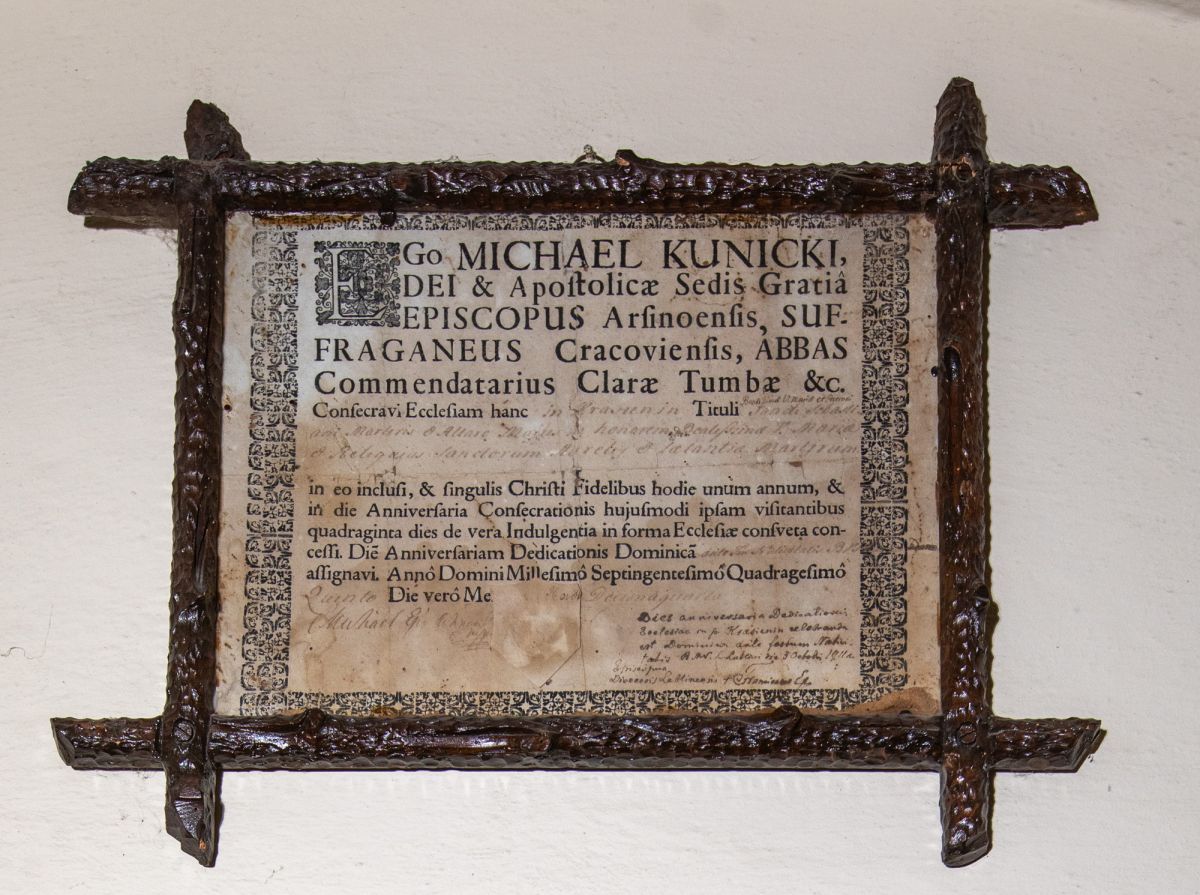 EGo MICHAEL KUNICKI,
DEI & Apoſtolicæ Sedis Gratiâ
EPISCOPUS Arſinoenſis, SUF-
FRAGANEUS Cracovienſis, ABBAS
Commendatarius Claræ Tumbæ &c.
Conſecravi Eccleſiam hanc in Krasienin Tituli
Martyris & Altare in honorem Beatissimæ V. Mariæ
& Reliquias Sanctorum Aurelij & Martyrum
in eo incluſi, & ſingulis Chriſti Fidelibus hodie unum annum, &
in die Anniverſaria Conſecrationis hujuſmodi ipſam viſitantibus
quadraginta dies de vera Indulgentia in forma Eccleſiæ conſveta con-
ceſſi. Diē Anniverſariam Dedicationis Dominicā
aſſignavi. Annô Domini Milleſimô Septingenteſimô Quadrageſimô
Quinto Die verô Me
Michael
Dies anniversaria Dedicationis
Ecclesiae in Krasienin celebranda
est Dominica ante festum Nativi-
tatis B.M.V. Lublini die 3 Octobris
Episcopus
Dioecesis Lublinensis † Franciscus Ep.